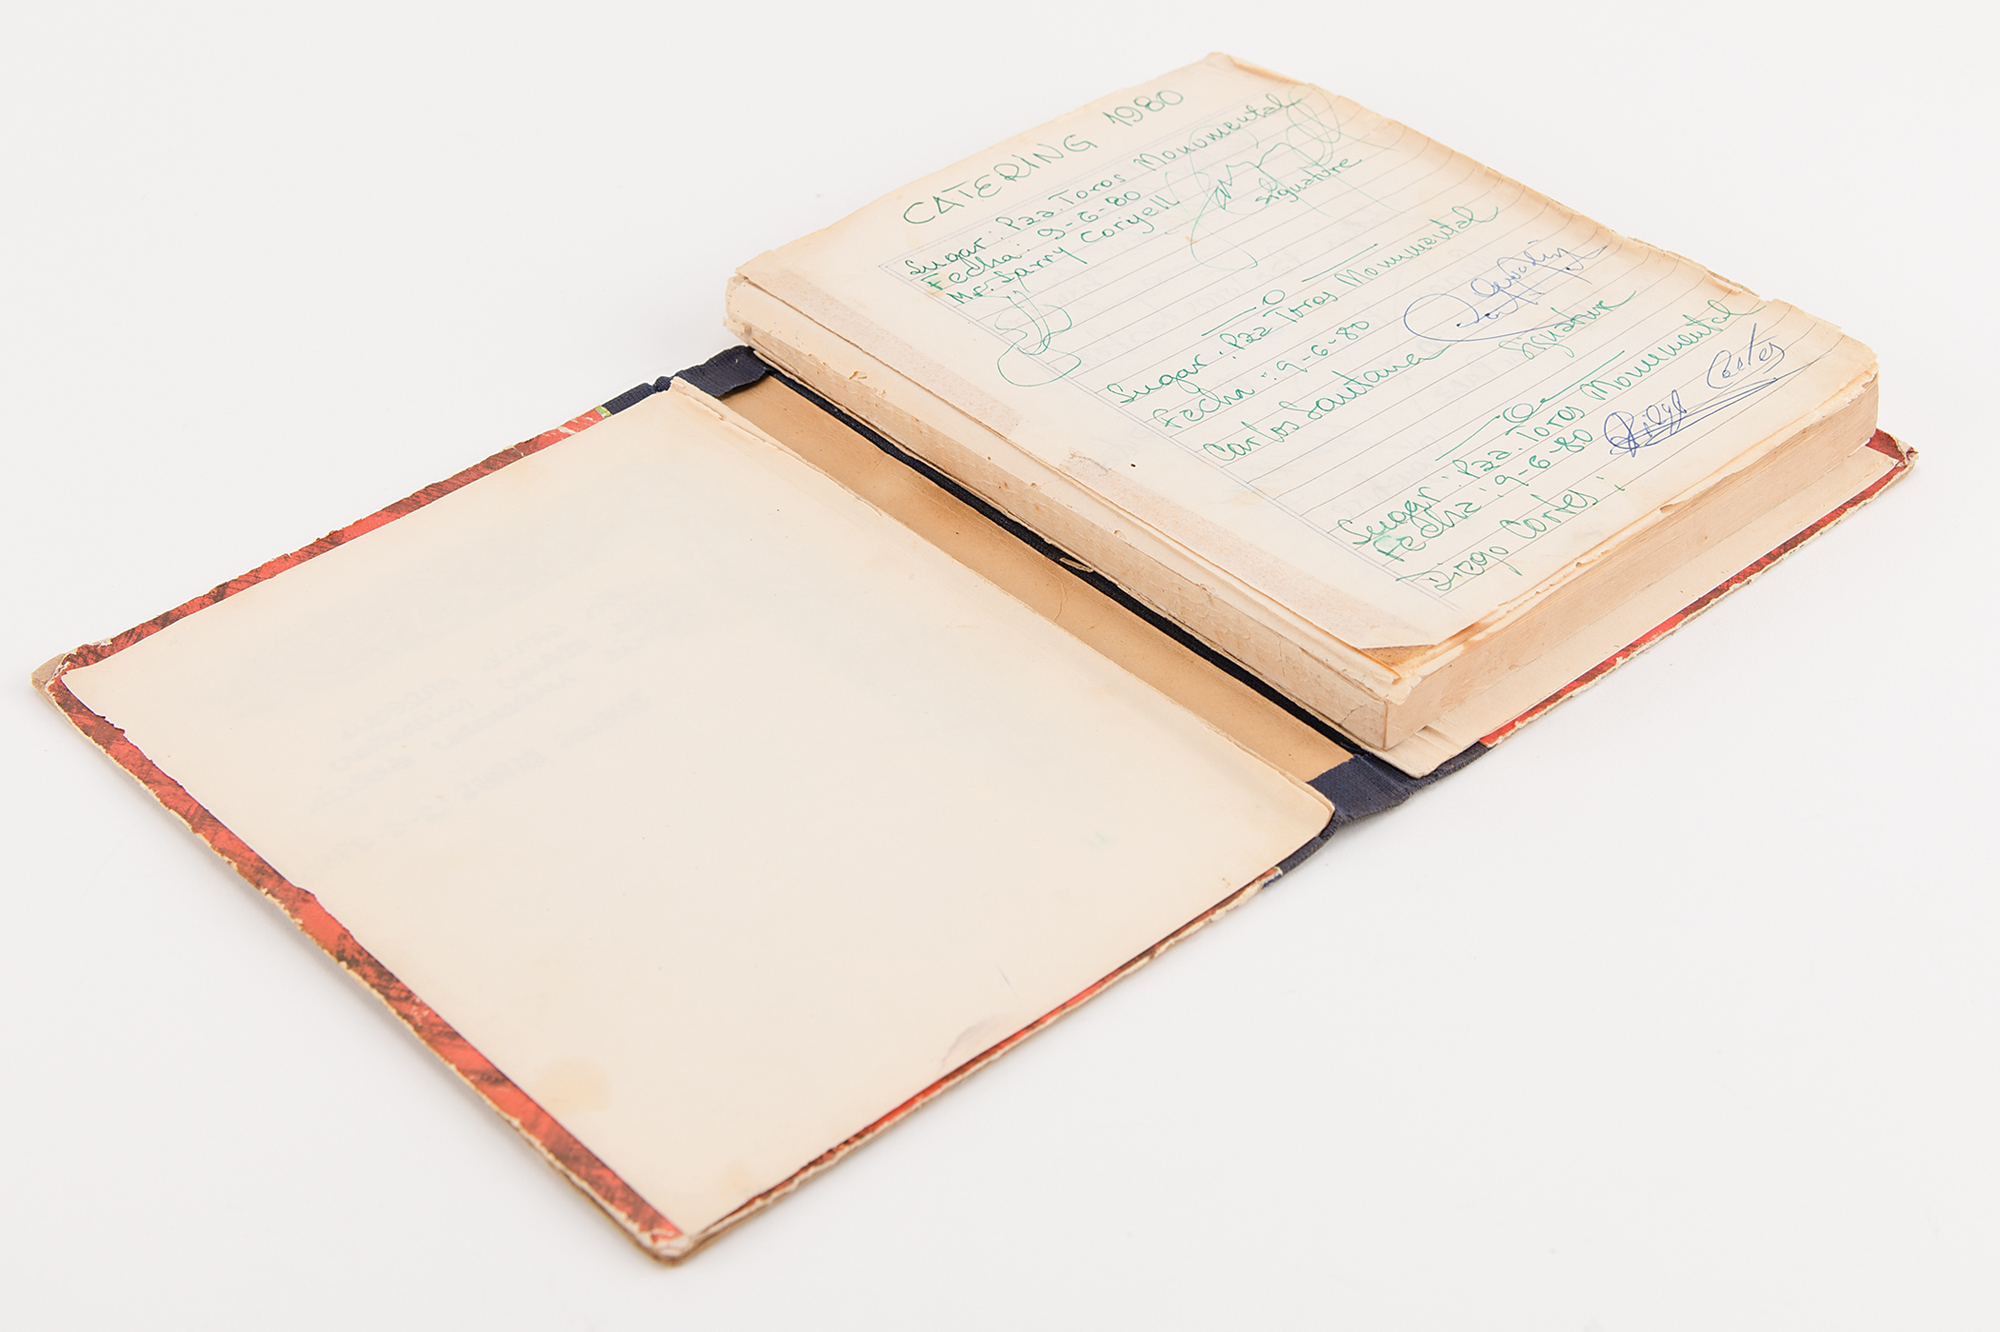 CATERING 1980
Lugar: Pza. Toros Monumental
Fecha: 9-6-80
Mr. Larry Coryell
signature
Lugar: Pza Toros Monumental
Fecha: 9-6-80
Carlos Santana
signature
Lugar: Pza. Toros Monumental
Fecha: 9-6-80
Diego Cortes: Diego Cortes